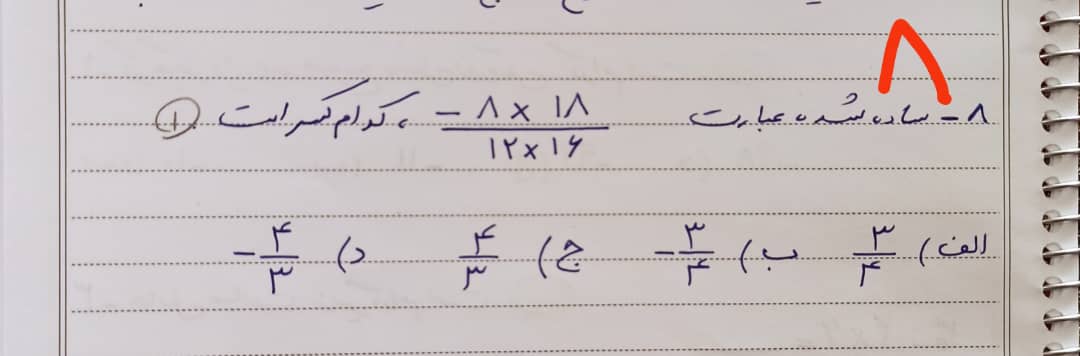 ۸
۸- ساده شده عبارت (- ۸ × ۱۸)/(۱۲ × ۱۶) ، کدام کسر است. ۱
الف) ۳/۴ ب) -۳/۴ ج) ۴/۳ د) -۴/۳